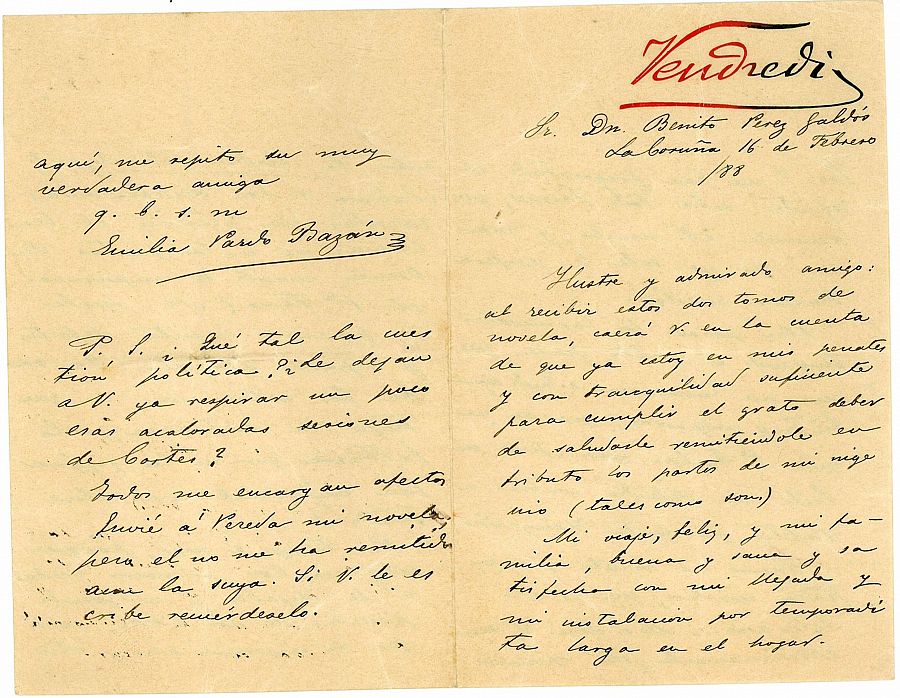 Vendredi
Sr. Dn. Benito Perez Galdós
La Coruña 16 de Febrero
/88
Ilustre y admirado amigo:
al recibir estos dos tomos de
novela, caerá V. en la cuenta
de que ya estoy en mis penates
y con tranquilidad suficiente
para cumplir el grato deber
de saludarle remitiendole en
tributo los partos de mi inge
nio (tales como son.)
Mi viaje, feliz, y mi fa-
milia, buena y sana y sa
tisfecha con mi llegada y
mi instalacion por temporadi
ta larga en el hogar.
aquí, me repito su muy
verdadera amiga
q. b. s. m
Emilia Pardo Bazán
P. S. ¿Qué tal la cues
tión política? ¿Le dejan
a V. ya respirar un poco
esas acaloradas sesiones
de Cortes?
Todos me encargan afectos
Envié á Pereda mi novela,
pero el no me ha remitido
aun la suya. Si V. le es
cribe recuérdeselo.